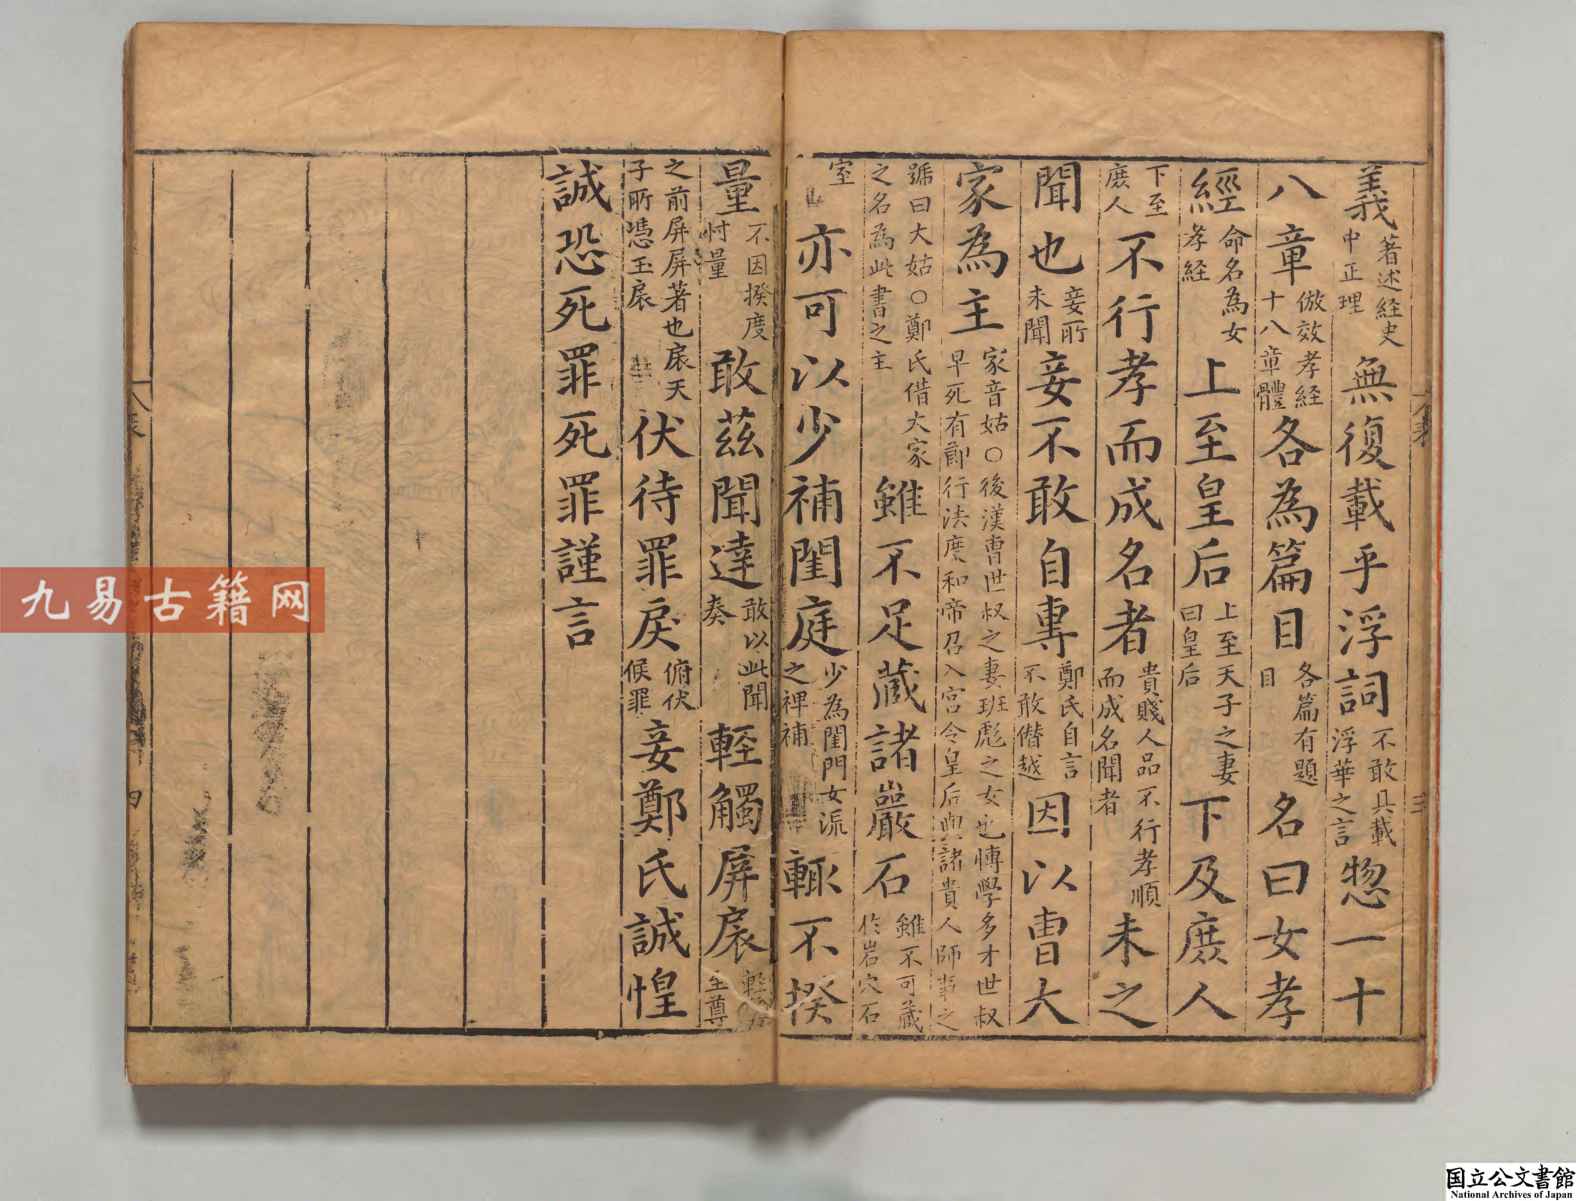 義著述経史中正理無復載乎浮詞不敢具載浮華之言惣一十
八章倣效孝経十八章體各為篇目各篇有題目名曰女孝
經命名為女孝経上至皇后上至天子之妻曰皇后下及庻人
下至庻人不行孝而成名者貴賤人品不行孝順而成名聞者未之
聞也妾所未聞妾不敢自專鄭氏自言不敢僣越因以曹大
家為主家音姑○後漢曹世叔之妻班彪之女也愽學多才世叔早死有節行法度和帝召入宮令皇后與諸貴人師事之
號曰大姑○鄭氏借大家之名為此書之主雖不足藏諸巖石雖不可藏於岩穴石
室亦可以少補閨庭少為閨門女流之裨補輙不揆
量不因揆度忖量敢茲聞達敢以此聞奏輕觸屏扆至尊
之前屏屏著也扆天子所憑玉扆伏待罪戾俯伏候罪妾鄭氏誠惶
誠恐死罪死罪謹言
四
九易古籍网
国立公文書館
National Archives of Japan